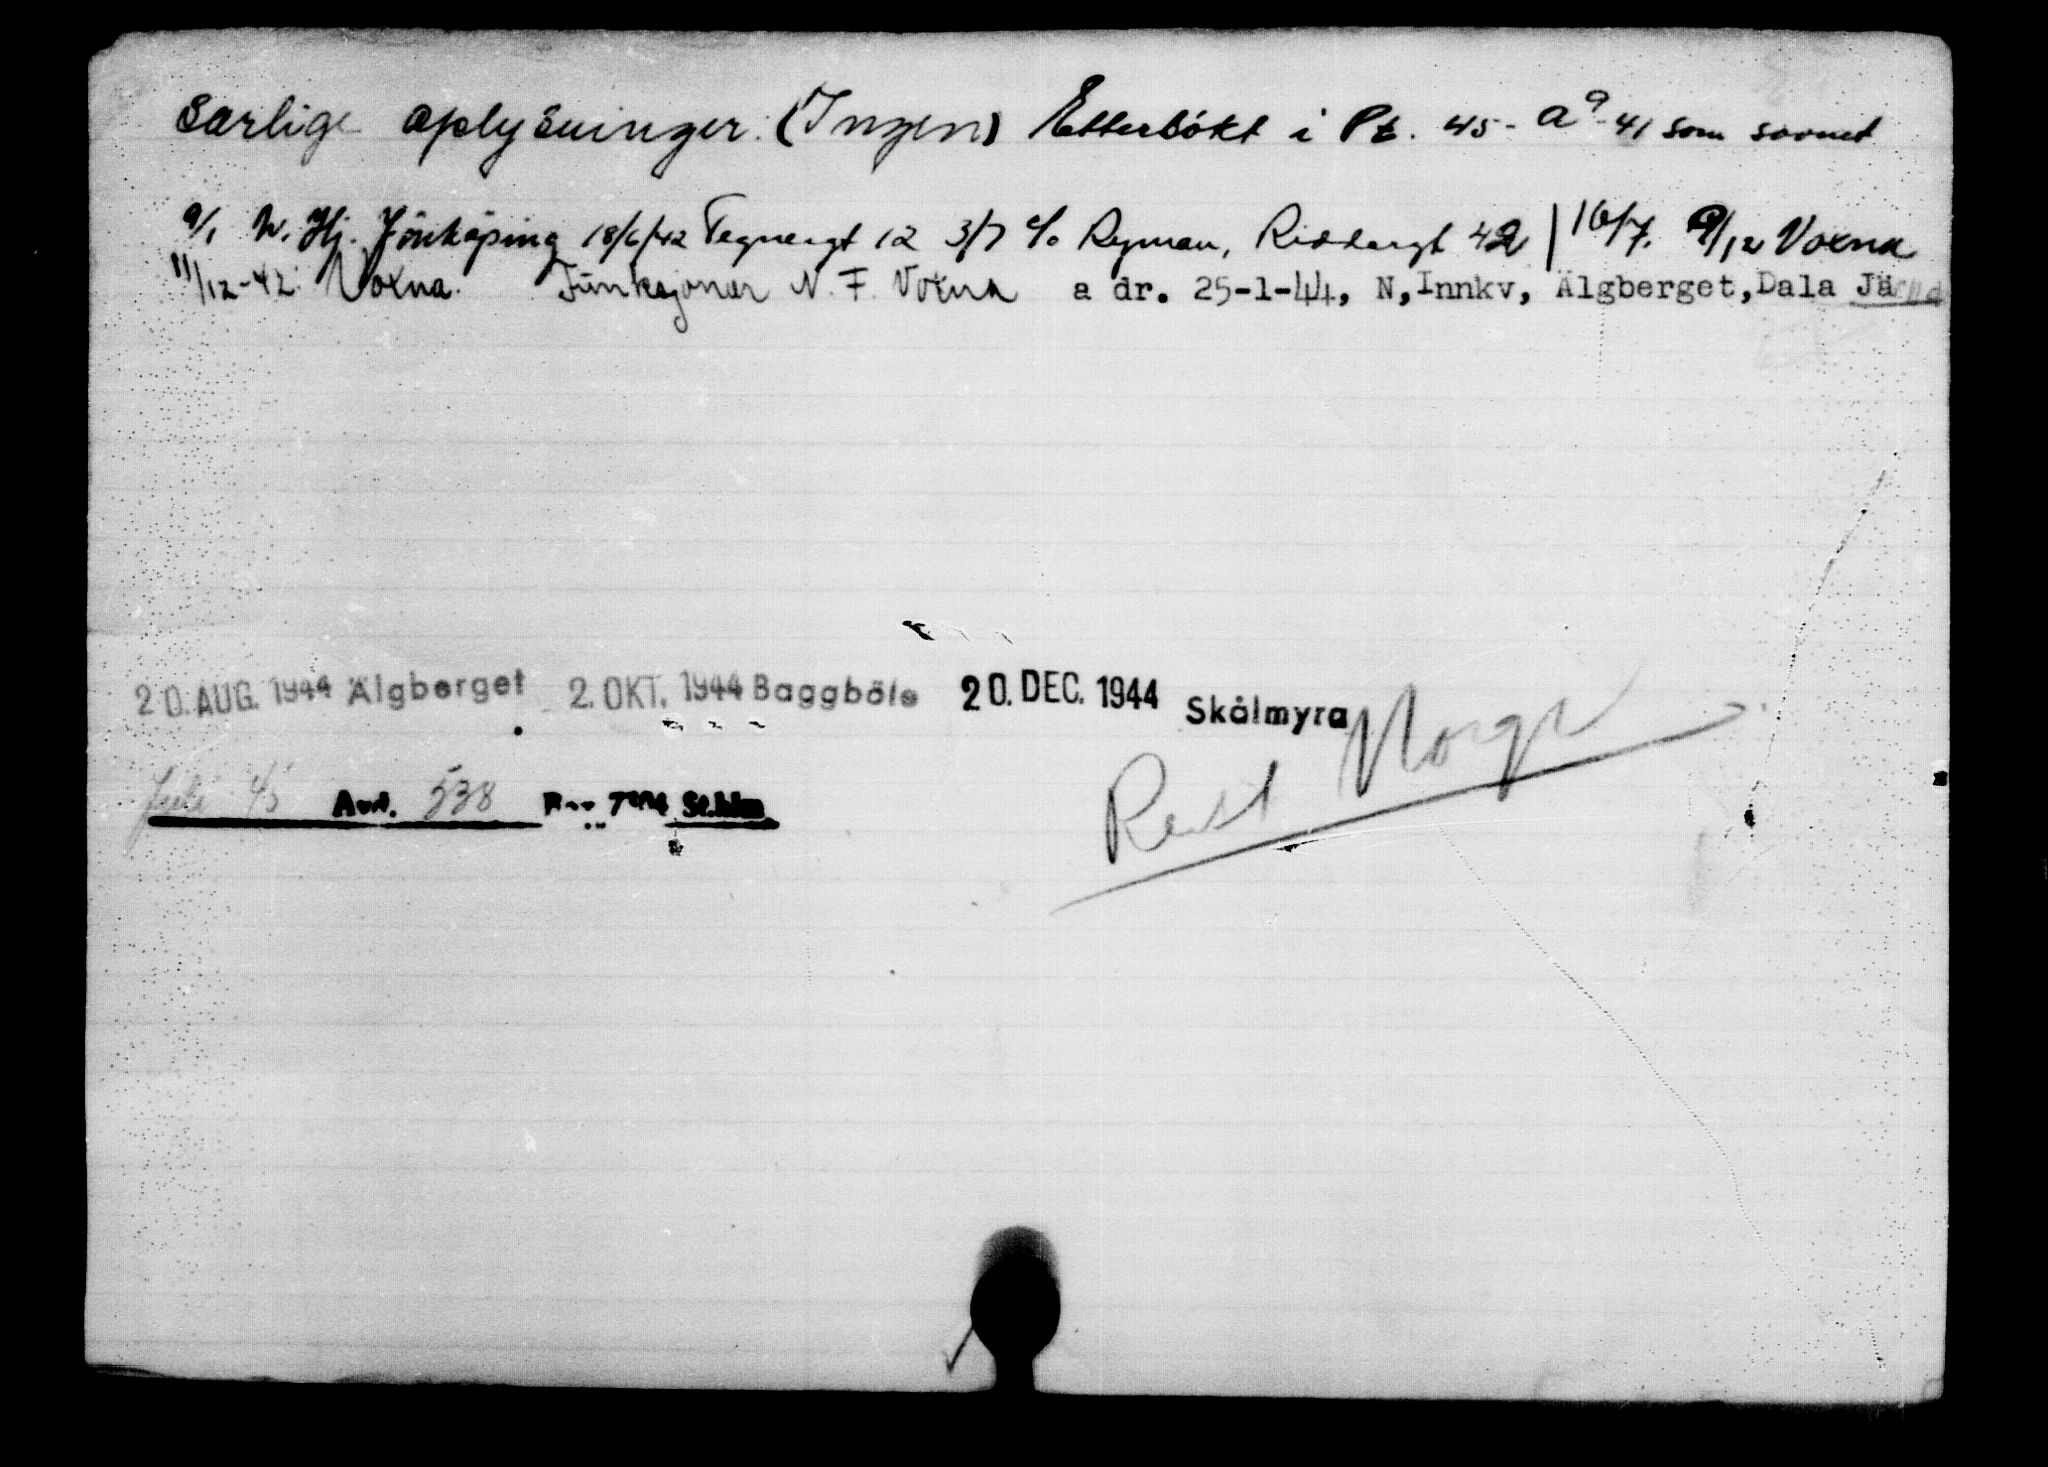 Særlige oplysninger: (Ingen) Etterbökt i Pt. 45- a9-41 som savnet
9/1 W. Hj. Jönköping 18/6/42 Tegnergt 12 3/7 c/o Ryman, Riddargt 42 | 16/7. 9/12 Voxna
11/12-42: Voxna. Funksjonær N. F. Voxna a dr. 25-1-44, N,Innkv, Älgberget,Dala Järna
20. AUG. 1944 Älgberget 2. OKT. 1944 Baggböle 20. DEC. 1944 Skålmyra
Juli 45 Avd. 538 St.hlm
Reist Norge